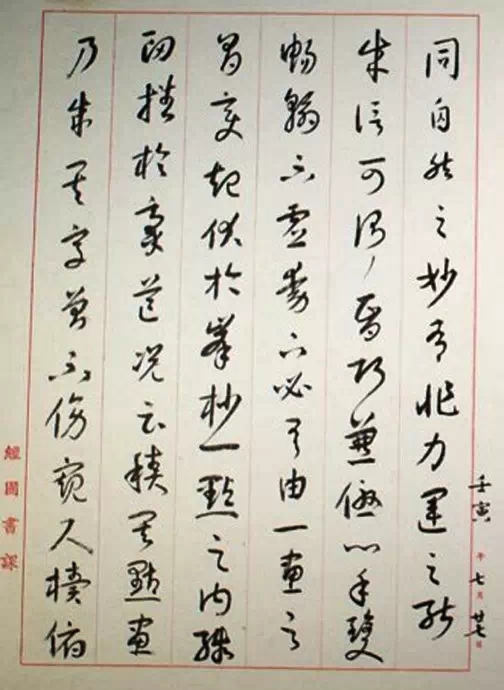 壬寅年七月廿七日
同自然之妙有非力運之能
成信可謂智巧兼優心手雙
暢翰不虛動下必有由一畫之
間變起伏於峯杪一點之內殊
衄挫於豪芒況云積其點畫
乃成其字曾不傍窺尺牘俯
經國書課